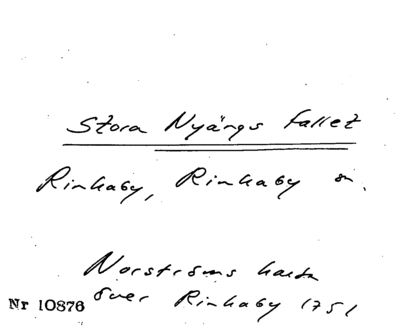 Stora Nyängs fallet
Rinkaby, Rinkaby sn.
Norströms karta
över Rinkaby 1751
Nr 10876